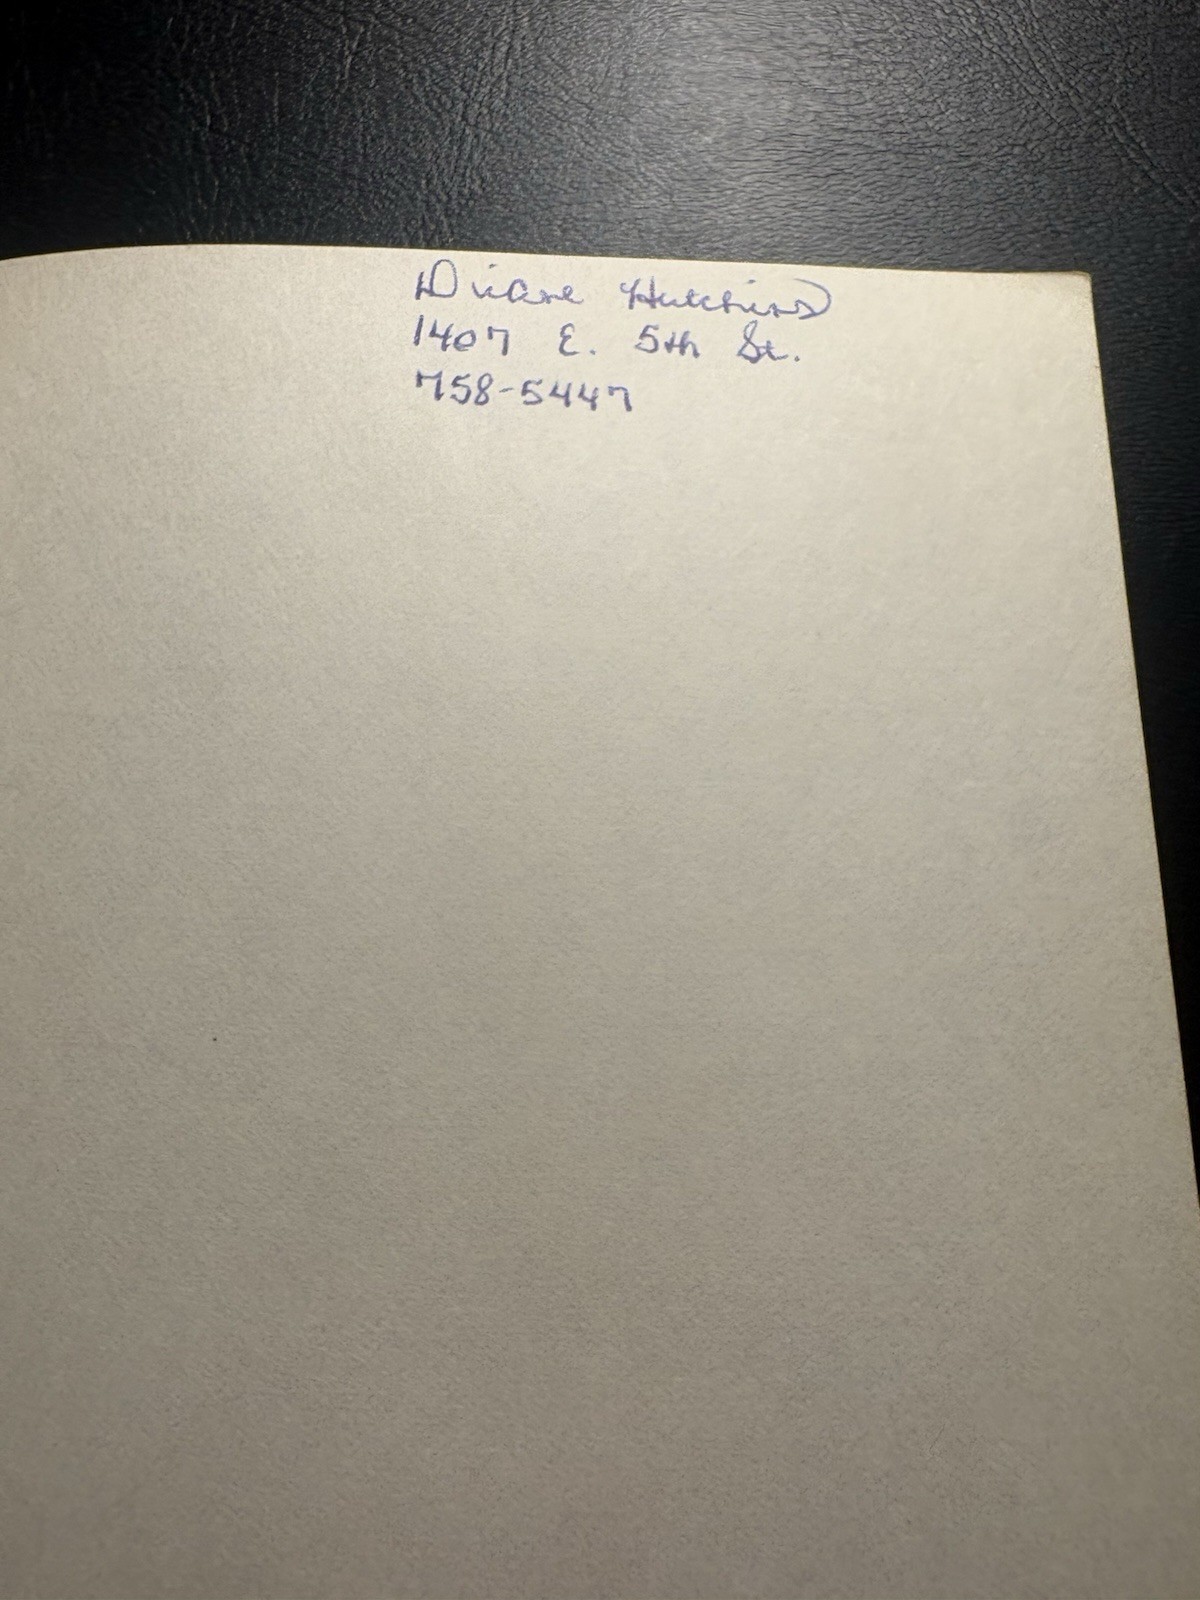 Diane Hutchins
1407 E. 5th St.
758-5447